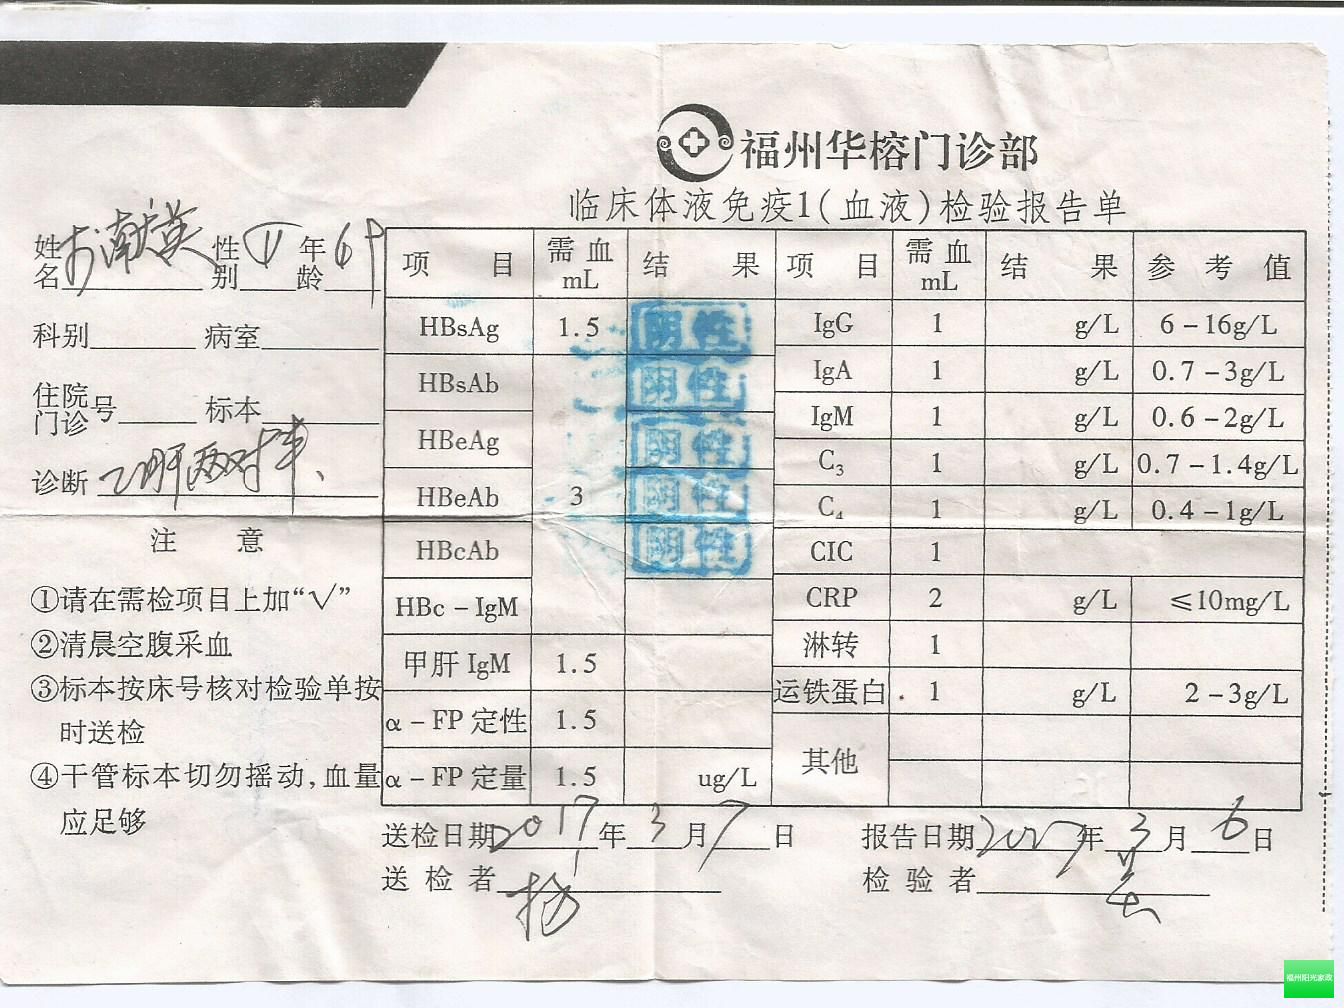 福州华榕门诊部
临床体液免疫1(血液)检验报告单
姓名 性别 年龄
科别 病室
住院门诊号 标本
诊断 乙肝两对半、
注 意
①请在需检项目上加“√”
②清晨空腹采血
③标本按床号核对检验单按
时送检
④干管标本切勿摇动,血量
应足够
项 目 需血mL 结 果 项 目 需血mL 结 果 参 考 值
HBsAg 1.5 阴性 IgG 1 g/L 6-16g/L
HBsAb 阴性 IgA 1 g/L 0.7-3g/L
HBeAg 阴性 IgM 1 g/L 0.6-2g/L
C₃ 1 g/L 0.7-1.4g/L
HBeAb 3 阴性 C₄ 1 g/L 0.4-1g/L
HBcAb 阴性 CIC 1
HBc-IgM CRP 2 g/L ≤10mg/L
甲肝IgM 1.5 淋转 1
α-FP定性 1.5 运铁蛋白 1 g/L 2-3g/L
α-FP定量 1.5 ug/L 其他
送检日期 2017年3月7日 报告日期 年3月6日
送检者 杨 检验者
福州阳光家政